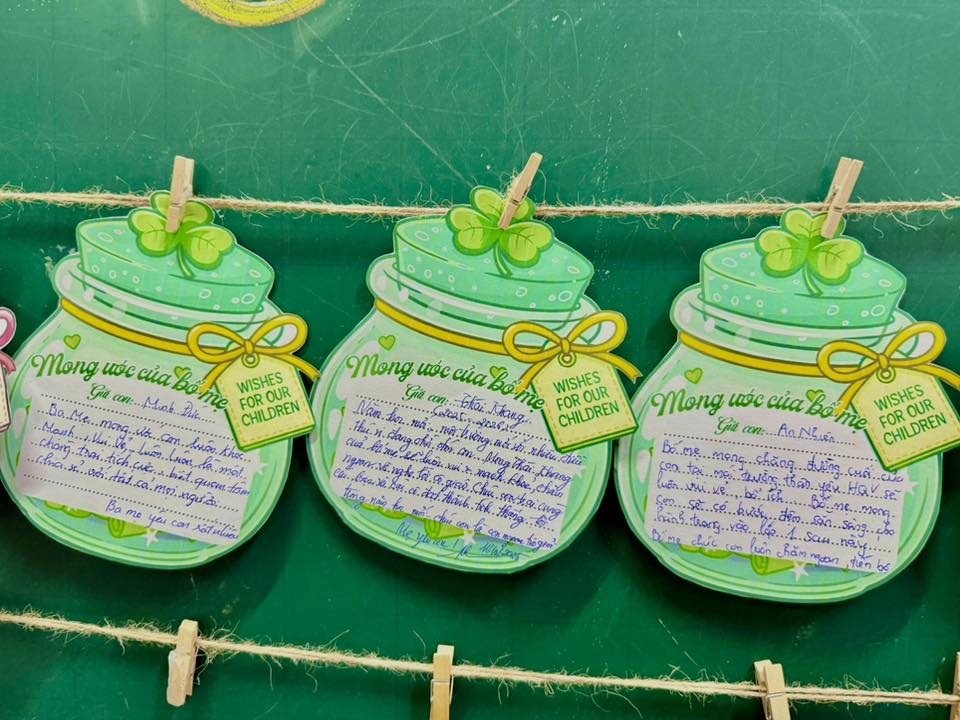 Mong ước của bố mẹ
Gửi con: Minh Đức
WISHES
FOR OUR
CHILDREN
Ba Mẹ mong ước con luôn khoẻ
Mạnh, Vui Vẻ, luôn luôn là một
chàng trai tích cực, biết quan tâm
chia sẻ với tất cả mọi người.
Ba mẹ yêu con rất nhiều
Mong ước của bố mẹ
Gửi con: Thái Khang
2025 2026
WISHES
FOR OUR
CHILDREN
Năm học mới, môi trường mới với nhiều điều
thú vị đang chờ đón con. Mong Thái Khang
của bố mẹ sẽ luôn vui vẻ, mạnh khoẻ, chăm
ngoan và nghe lời cô giáo.
bạn và con sẽ đạt thành tích
con là con ngoan trò giỏi
Mẹ yêu con
Mong ước của bố mẹ
Gửi con: An Nhiên
WISHES
FOR OUR
CHILDREN
Bố mẹ mong chặng đường cuối của
con tại mái trường thân yêu HQV sẽ
luôn vui vẻ, bổ ích. Bố mẹ mong
con sẽ có bước đệm sẵn sàng cho
hành trang vào lớp 1 sau này.
Bố mẹ chúc con luôn chăm ngoan, tiến bộ